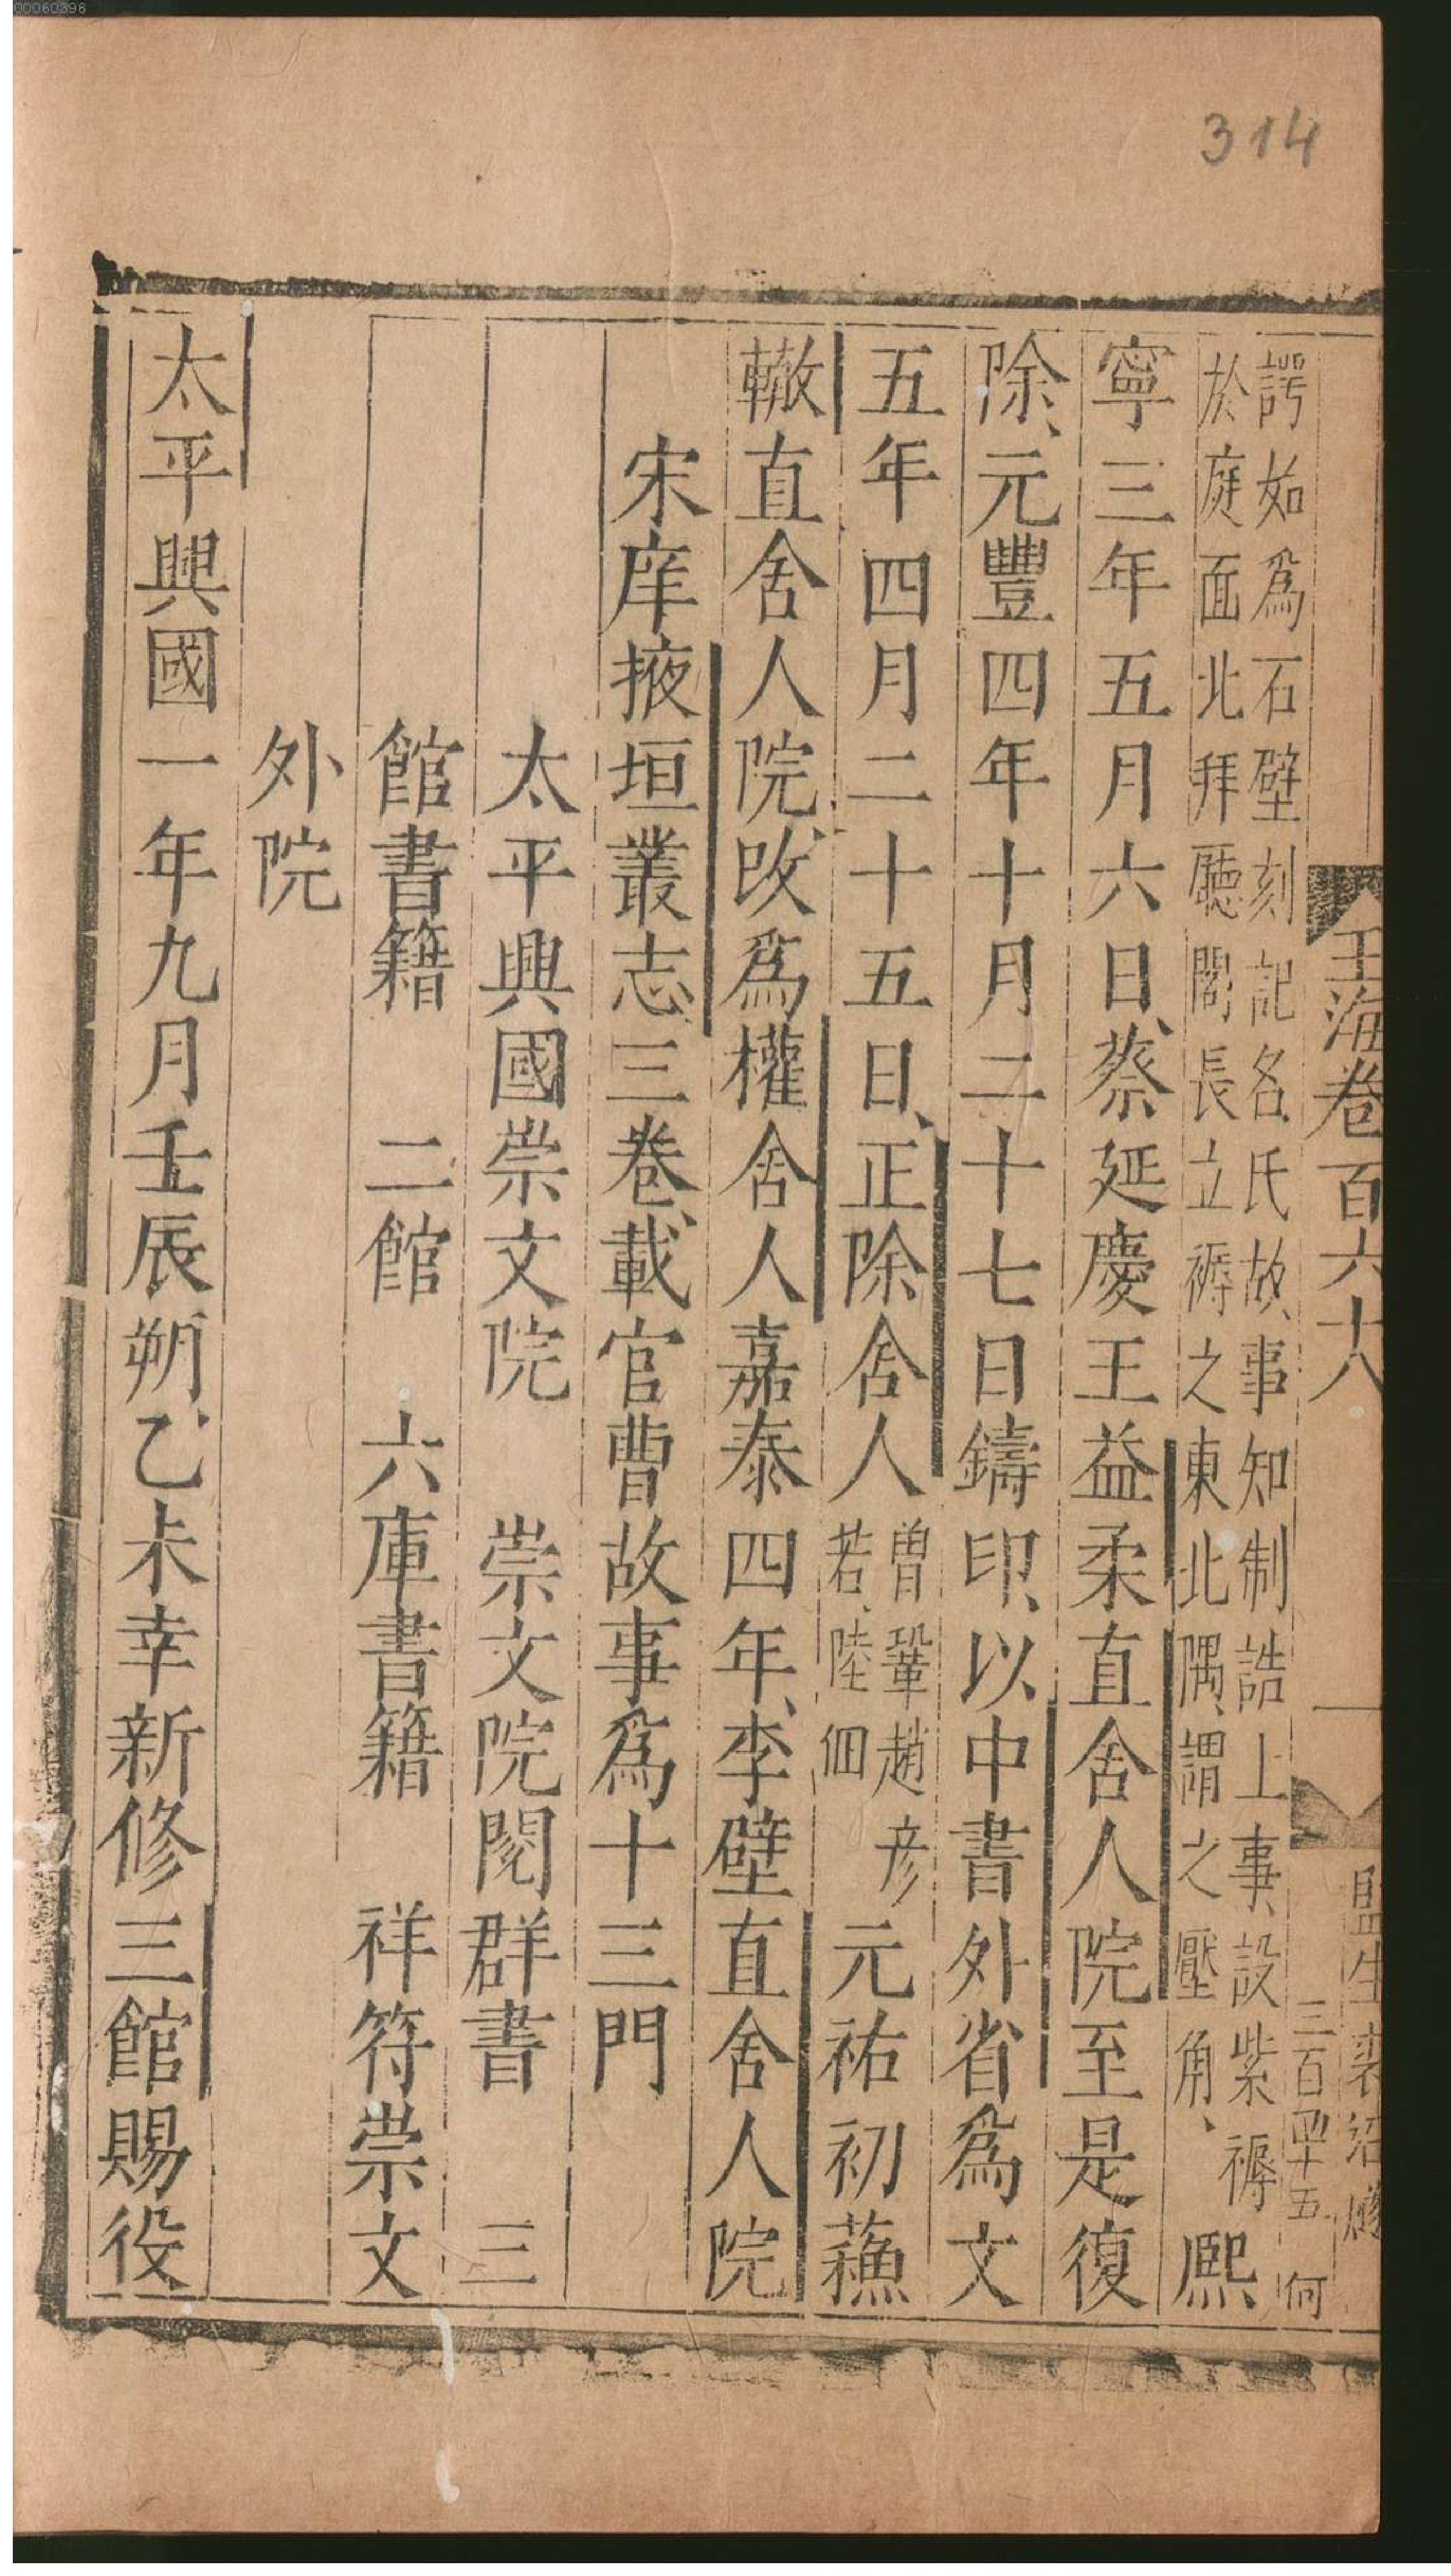 00060396
314
玉海卷百六十八
一
監生裴沼𭺗
三百四十五
何
諤始爲石壁刻記名氏故事知制誥上事設紫褥
於庭面北拜廳閣長立褥之東北隅謂之壓角、熙
寧三年五月六日、蔡延慶王益柔直舍人院至是復
除、元豐四年十月二十七日鑄印、以中書外省爲文
五年四月二十五日、正除舍人曾鞏趙彦若、陸佃元祐初蘓
轍直舍人院、改爲權舍人嘉泰四年、李壁直舍人院
宋庠掖垣叢志三卷、載官曹故事爲十三門
太平興國崇文院 崇文院閱群書 三
館書籍 二館 六庫書籍 祥符崇文
外院
太平興國一年九月壬辰朔、乙未幸新修三館賜役